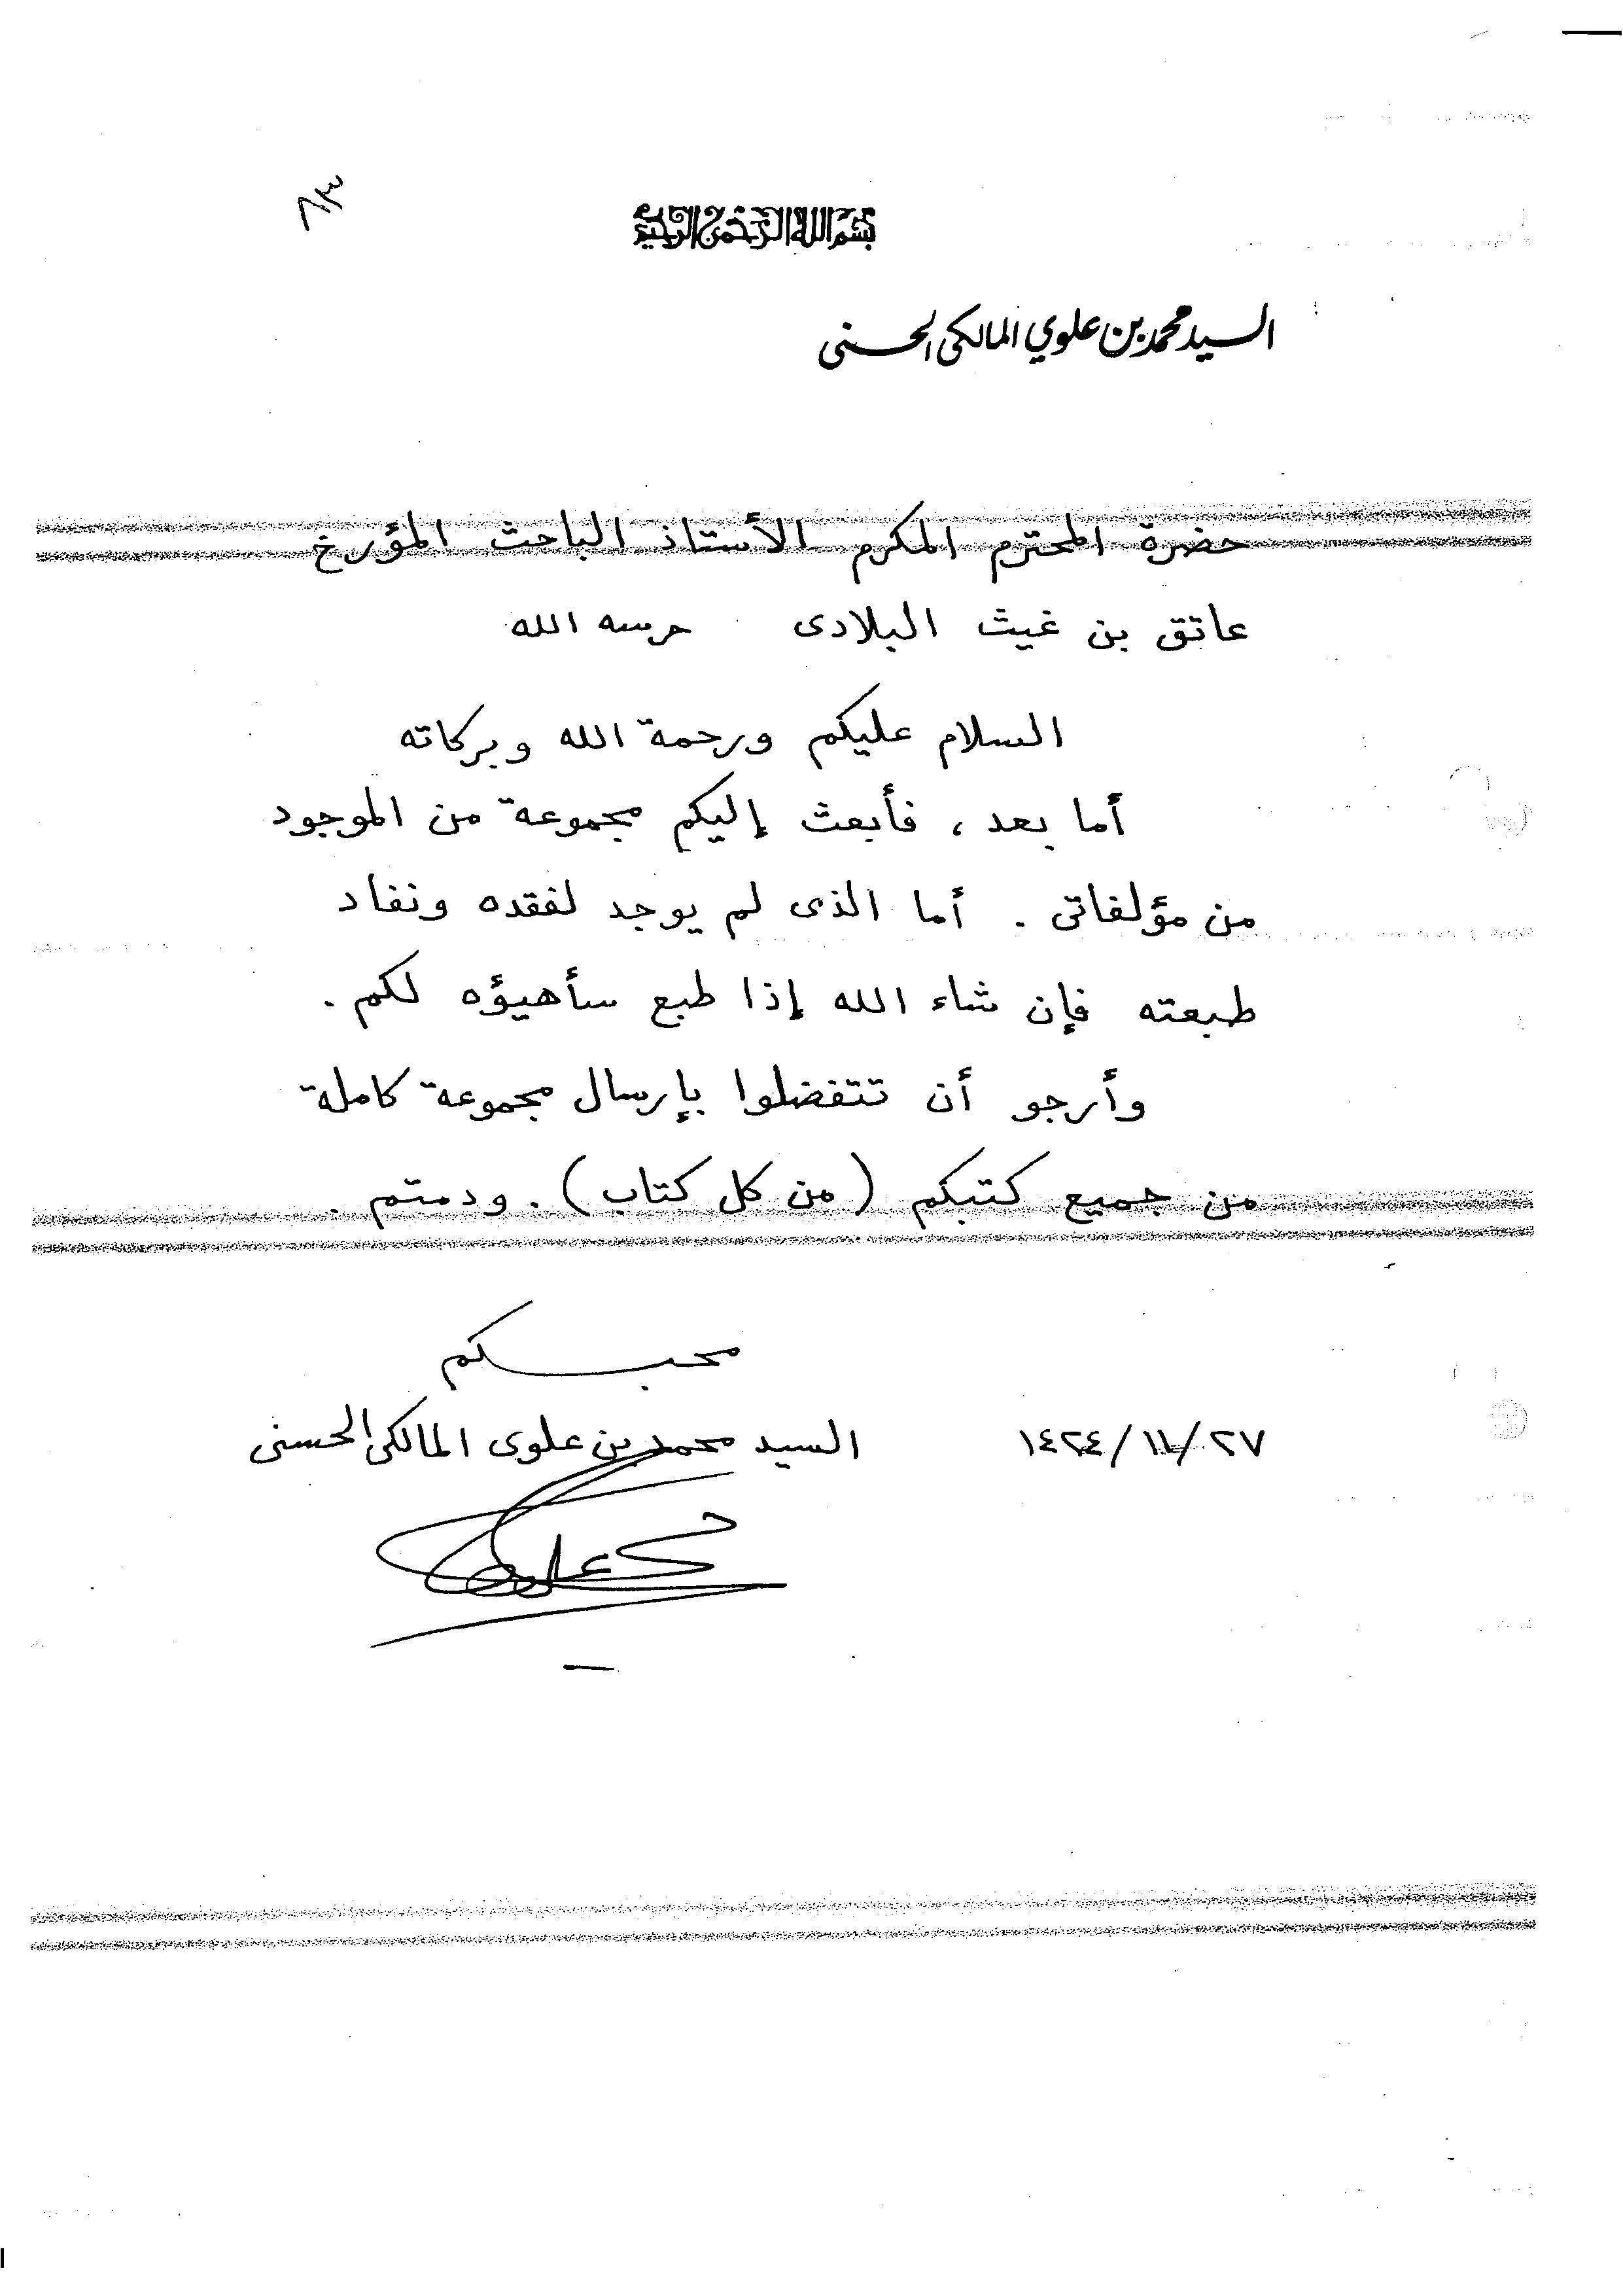 بسم الله الرحمن الرحيم
السيد محمد بن علوي المالكي الحسني
حضرة المحترم المكرم الأستاذ الباحث المؤرخ
عاتق بن غيث البلادى حرسه الله
السلام عليكم ورحمة الله وبركاته
أما بعد ، فأبعث إليكم مجموعة من الموجود
من مؤلفاتى . أما الذى لم يوجد لفقده ونفاد
طبعته فإن شاء الله إذا طبع سأهيؤه لكم .
وأرجو أن تتفضلوا بإرسال مجموعة كاملة
من جميع كتبكم ( من كل كتاب ) . ودمتم .
محبكم
السيد محمد بن علوى المالكى الحسنى